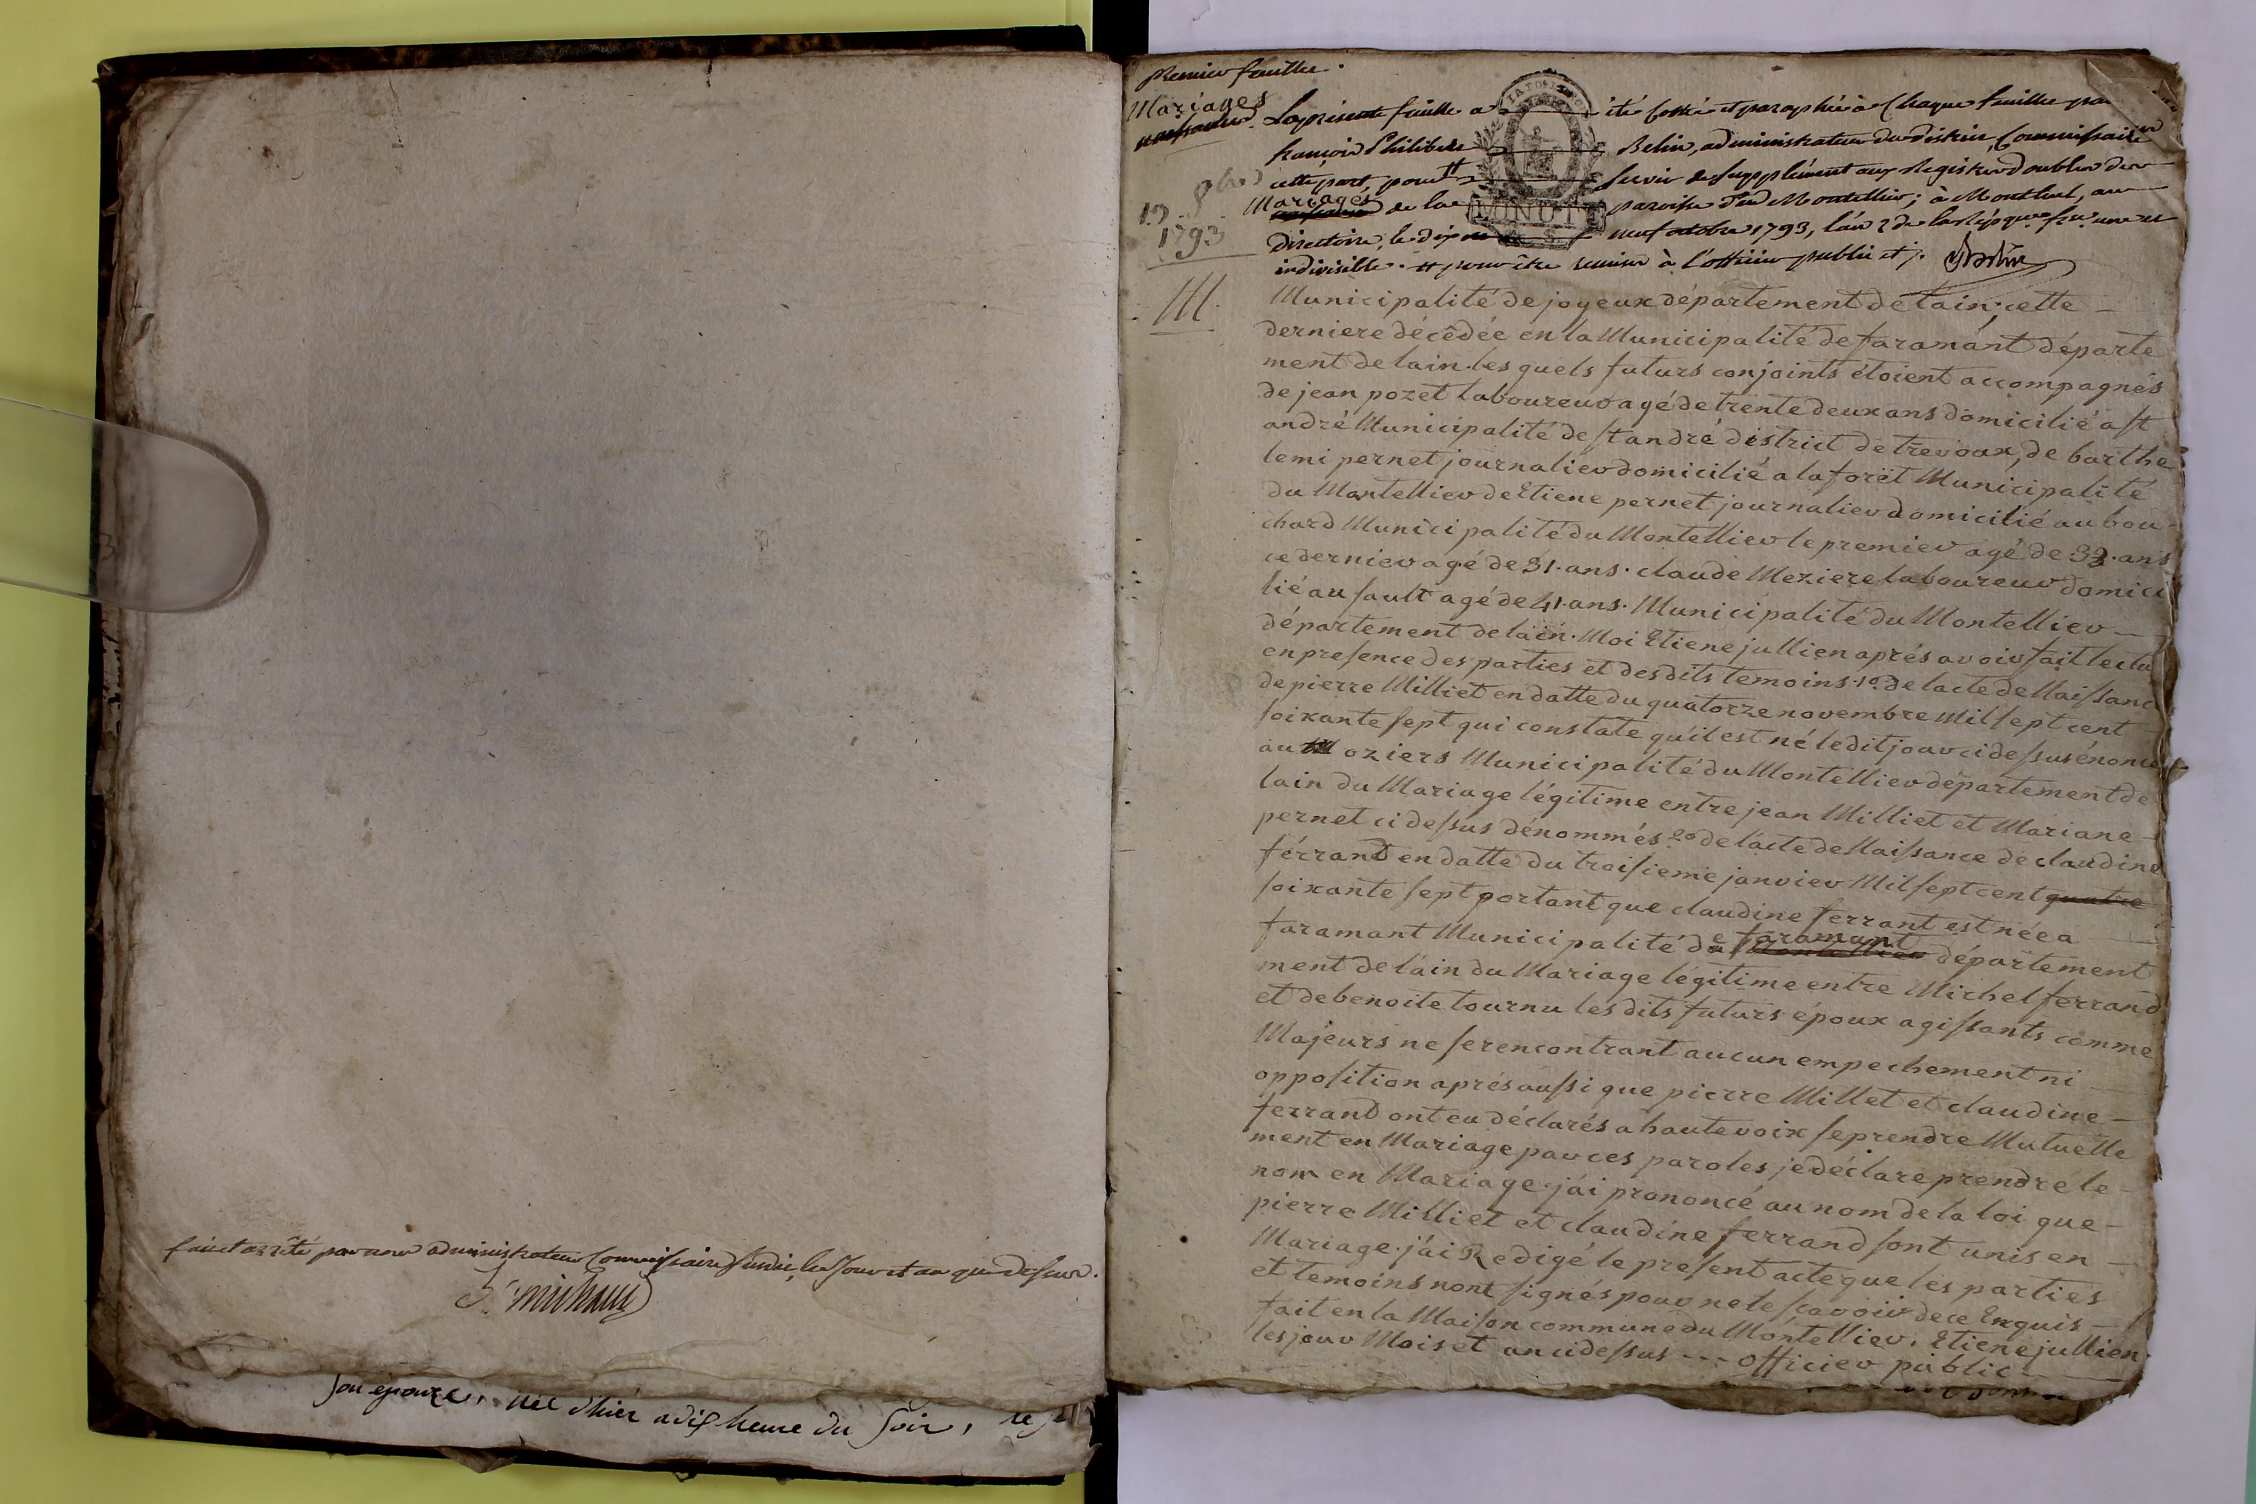 fait et arrêté par nous administrateur Commissaire susdit, les Jour et an que dessus.
Michaud
son épouze, née d'hier a dix heure du soir,
premier feuillet.
Mariages
naissances
La présente feuille a été cottée et paraphée à Chaque feuille par
françois Philibert Belin, administrateur du district, Commissaire
cette part, pour # servir de supplément aux Registres doubles des
19 8bre
1793
Mariages
naissances de la paroisse du Montellier; à Montluel, au
MINUTE
directoire, le dix neuf octobre 1793, l'an 2 de la Répque. fse. une et
indivisible. # pour être remises à l'officier public et j. Belin
M.
Municipalité de joyeux département de l'ain; cette
derniere décédée en la Municipalité de faramant départe
ment de lain. les quels futurs conjoints étoient accompagnés
de jean pozet laboureur agé de trente deux ans domicilié a st
andré Municipalité de st andré district de trevoux, de barthe
lemi pernet journalier domicilié a la forêt Municipalité
du Montellier de Etiene pernet journalier domicilié au bou-
chard Municipalité du Montellier le premier agé de 33. ans
ce dernier agé de 31. ans. claude Meziere laboureur domici
lié au sault agé de 41. ans. Municipalité du Montellier
département de lain. Moi Etiene jullien aprés avoir fait lectu
en presence des parties et des dits temoins. 1º de lacte de Naissanc
de pierre Milliet en datte du quatorze novembre Mil sept cent
soixante sept qui constate qu'il est né le dit jour ci dessus énoncé
au oziers Municipalité du Montellier département de
lain du Mariage légitime entre jean Milliet et Mariane
pernet ci dessus dénommés 2º de lacte de Naissance de claudine
férrand en datte du troisieme janvier Mil sept cent quatre
soixante sept portant que claudine ferrant est née a
faramant Municipalité de faramant
du Montellier département
ment de l'ain du Mariage légitime entre Michel ferrand
et de benoite tournu les dits futurs époux agissants comme
Majeurs ne se rencontrant aucun empechement ni
opposition aprés aussi que pierre Millet et claudine
ferrand ont eu déclarés a haute voix se prendre Mutuelle
ment en Mariage par ces paroles je déclare prendre le
nom en Mariage. j'ai prononcé au nom de la loi que
pierre Milliet et claudine ferrand sont unis en
Mariage. j'ai Redigé le present acte que les parties
et temoins nont signés pour ne le scavoir de ce Enquis
fait en la Maison commune du Montellier. Etiene jullien.
les jour Mois et an ci dessus --- officier public